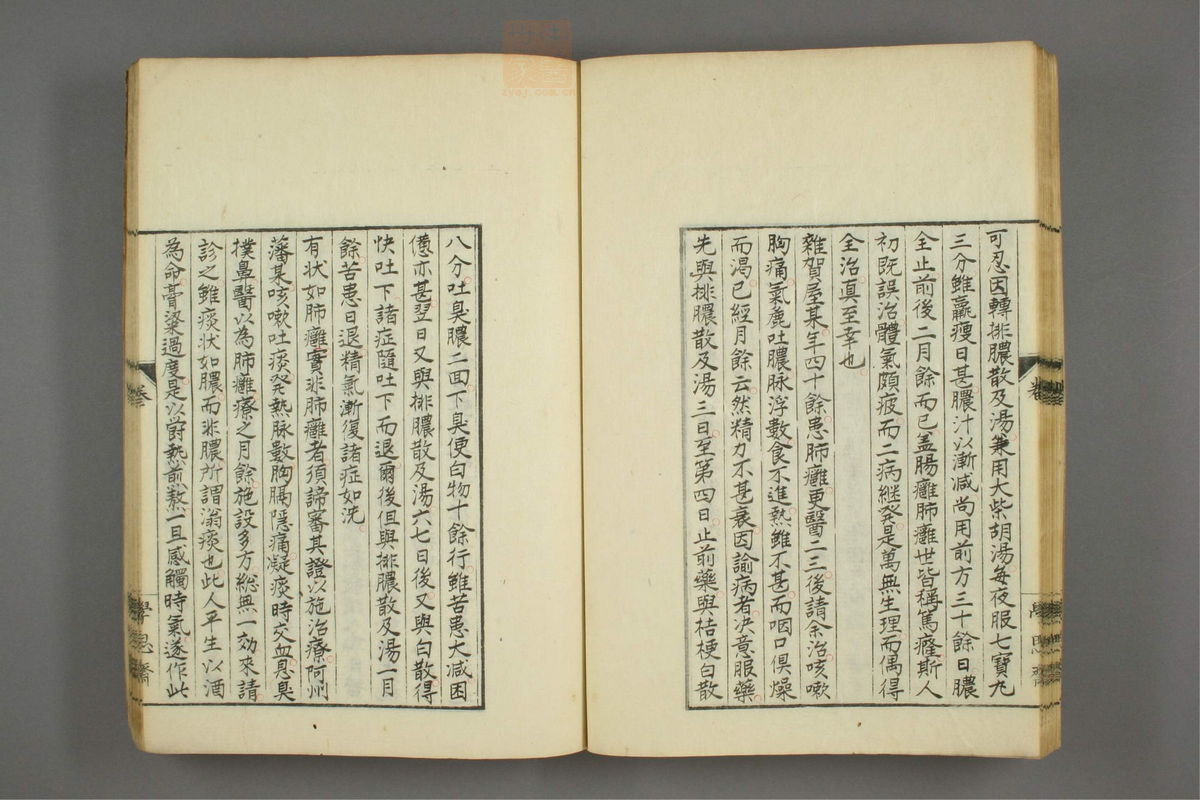 可忍因轉排膿散及湯兼用大柴胡湯每夜服七寶丸
三分雖羸瘦日甚膿汁以漸减尚用前方三十餘日膿
全止前後二月餘而已盖腸癰肺癰世皆稱篤癃斯人
初既誤治體氣頗疲而二病継発是萬無生理而偶得
全治真至幸也
雜賀屋某年四十餘患肺癰更醫二三後請余治咳嗽
胸痛氣麁吐膿脉浮數食不進熱雖不甚而咽口倶燥
而渴已經月餘云然精力不甚衰因諭病者决意服藥
先與排膿散及湯三日至第四日止前藥與桔梗白散
八分吐臭膿二面下臭便白物十餘行雖苦患大减困
憊亦甚翌日又與排膿散及湯六七日後又與白散得
快吐下諸症隨吐下而退爾後但與排膿散及湯一月
餘苦患日退精氣漸復諸症如洗
有状如肺癰實非肺癰者須諦審其證以施治療阿州
藩某咳嗽吐痰発熱脉數胸膈隱痛凝痰時交血息臭
撲鼻醫以為肺癰療之月餘施設多方総無一効來請
診之雖痰状如膿而非膿所謂滃痰也此人平生以酒
為命膏粱過度是以欝熱煎熬一旦感觸時氣遂作此
卷
學思齋